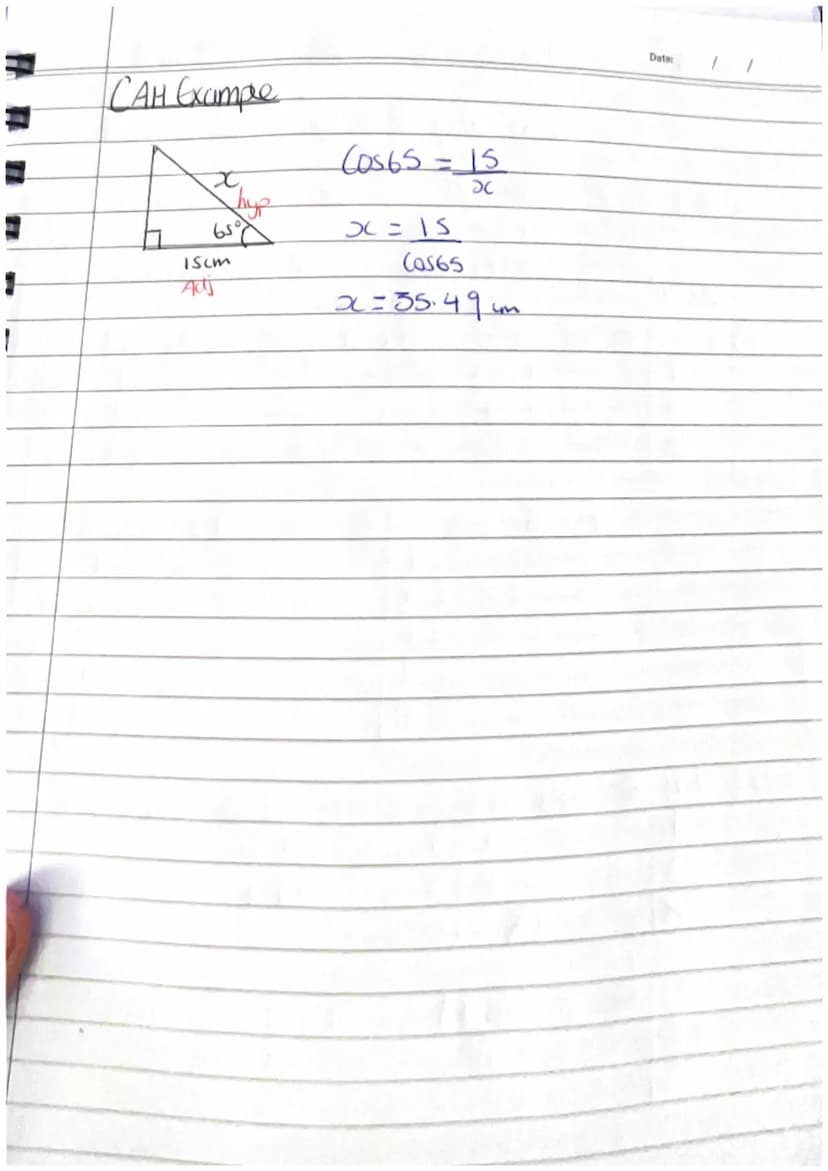 Date: / /
CAH Example
x
hyp
65°
15cm
Adj
Cos65 = 15
x
x = 15
Cos65
x = 35.49 cm